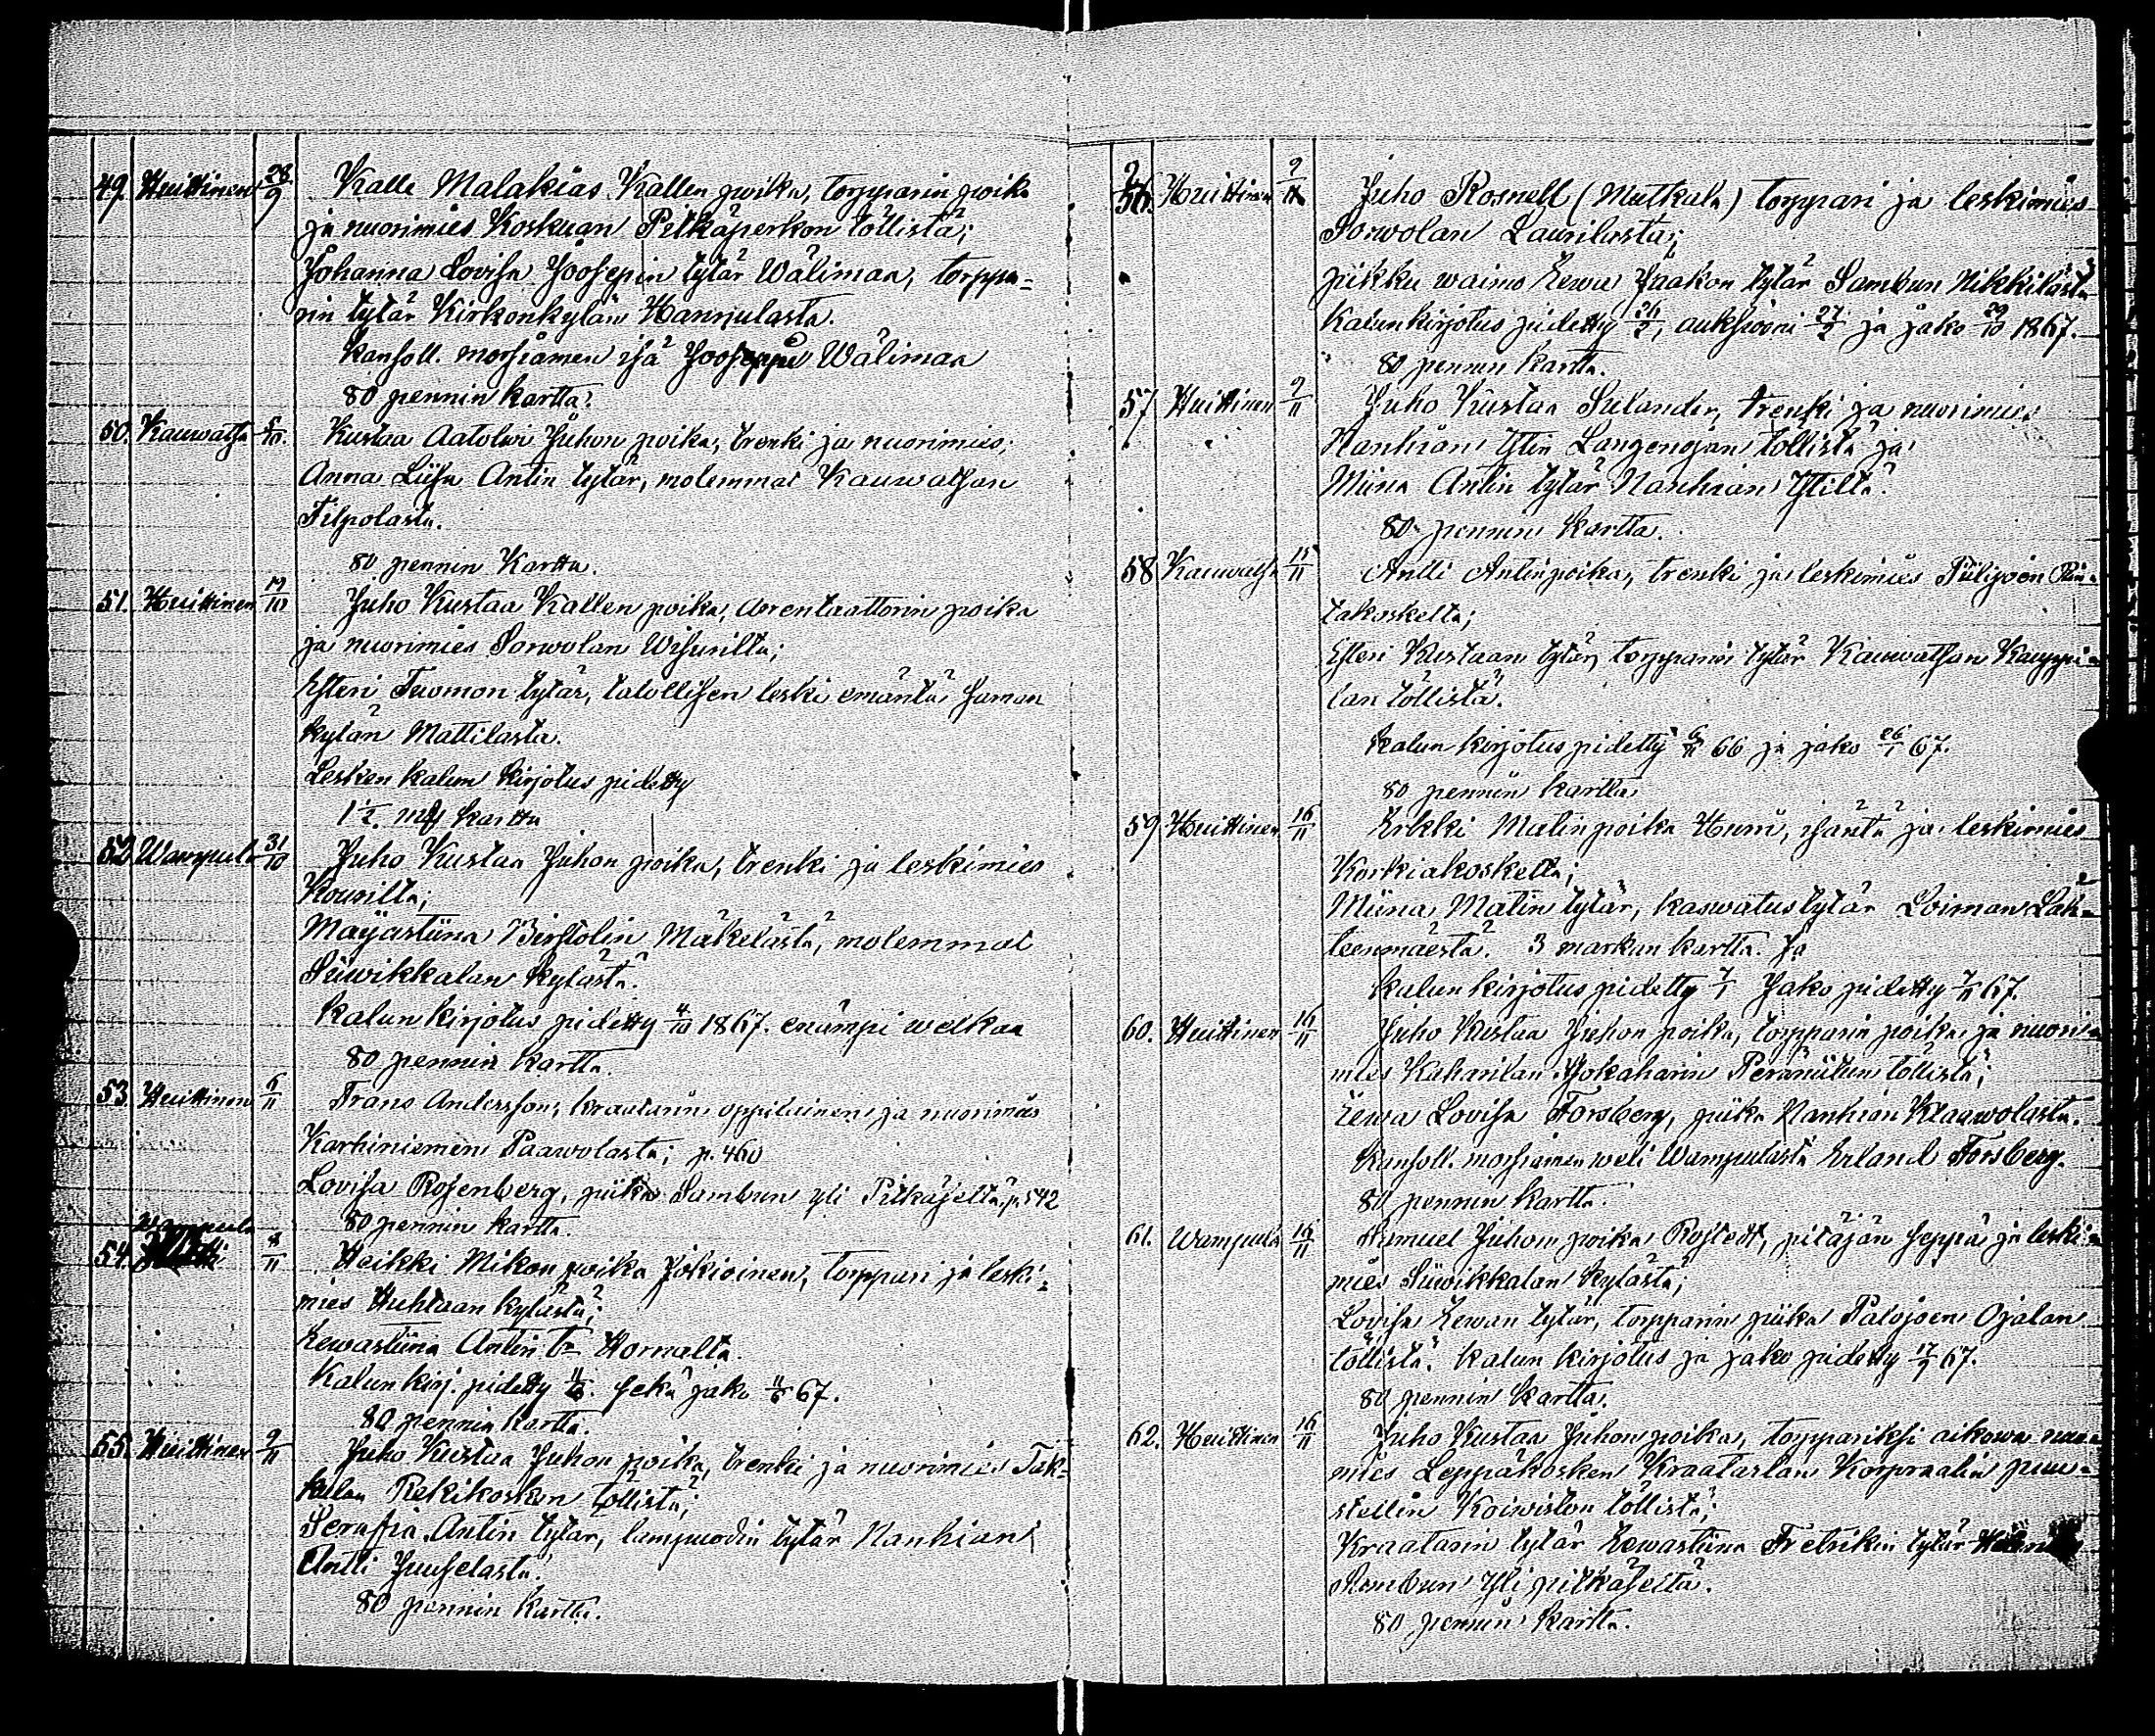 49. Huittinen 28/9 Kalle Malakias Kallen poika, torpparin poika
ja nuorimies Koskuan Pitkäperkon töllistä;
Johanna Lovisa Joosepin tytär Wälimaa, torppa-
rin tytär Kirkonkylän Hannulasta.
Konsoll. morsiamen isä Jooseppi Wälimaa
80 pennin kartta.
50. Kauwatsa 5/10. Kustaa Aatolwi Juhon poika, trenki ja nuorimies;
Anna Liisa Antin tytär, molemmat Kauwatsan
Filpolasta.
80 pennin Kartta.
51. Huittinen 19/10 Juho Kustaa Kallen poika, arentaattorin poika
ja nuorimies Sorwolan Wisurilta;
Esteri Tuomon tytär, talollisen leski emäntä saman
kylän Mattilasta.
Lesken kalun kirjotus pidetty
1 1/2 mk kartta
52 Wampula 31/10 Juho Kustaa Juhon poika, trenki ja leskimies
Kourilta;
Majastiina Birstolin Mäkelästä, molemmat
Siiwikkalan kylästä.
Kalun kirjotus pidetty 4/10 1867. enämpi welkaa
80 pennin kartta.
53. Huittinen 6/11 Frans Andersson, kraatarin oppilainen ja nuorimies
Karhiniemen Paawolasta; p. 460
Lovisa Rosenberg, piika Sambun yli Pitkäseltä, p. 542
80 pennin kartta.
Wampula
54. 8/11 Heikki Mikon poika Jokioinen, torppari ja leski-
mies Huhtaan kylästä;
Eewastiina Antin tr Hornalta.
Kalun kirj. pidetty 11/6. sekä jako 11/6 67.
80 pennin kartta.
55. Huittinen 9/11 Juho Kustaa Juhon poika, trenki ja nuorimies Tak-
kulan Rekikosken töllistä;
Serafia Antin tytär, lampuodin tytär Nanhian
Antti Juuselasta.
80 pennin kartta.
56. Huittinen 9/11 Juho Rosnell (Mutkala) torppari ja leskimies
Sorwolan Laurilasta;
piikku waimo Eewa Jaakon tytär Sambun Nikkilästä
Kalunkirjotus pidetty 26/2, auksiooni 27/2 ja jako 29/10 1867.
80 pennin kartta.
57 Huittinen 9/11 Juho Kustaa Sulander, trenki ja nuorimies
Nanhian Ystin Langenojan töllistä ja
Miina Antin tytär Nanhian Ystiltä.
80 pennin kartta.
58 Kauwatsa 15/11 Antti Antinpoika, trenki ja leskimies Piilijoen Rin-
takoskelta;
Esteri Kustaan tytär, torpparin tytär Kauwatsan Kauppi-
lan töllistä.
Kalun kirjotus pidetty 6/11 66 ja jako 26/1 67.
80 pennin kartta
59 Huittinen 16/11 Erkki Matin poika Humi, isäntä ja leskimies
Korkiakoskelta;
Miina Matin tytär, kaswatus tytär Loiman Läh-
teenmäestä. 3 markan kartta. Ja
kalun kirjotus pidetty 7/1 Jako pidetty 7/11 67.
60. Huittinen 16/11 Juho Kustaa Juhon poika, torpparin poika ja nuori-
mies Kaharilan Jokaharin Peräniitun töllistä;
Eewa Lovisa Forsberg, piika Nanhian Klaawolasta.
Konsoll. morsiamen weli Wampulasta Erland Forsberg.
80 pennin kartta
61. Wampula 16/11 Samuel Juhon poika Rostedt, pitäjän seppä ja leski-
mies Siiwikkalan kylästä;
Lovisa Eewan tytär, torpparin piika Palojoen Ojalan
töllistä. Kalun kirjotus ja jako pidetty 17/9 67.
80 pennin kartta.
62. Huittinen 16/11 Juho Kustaa Juhon poika, torppariksi aikowa nuori-
mies Leppäkosken Kraatarlan Korpraalin puu-
stellin Koiwiston töllistä;
Kraatarin tytär Eewastiina Fretrikin tytär
Sambun Yli pitkäseltä.
80 pennin kartta.